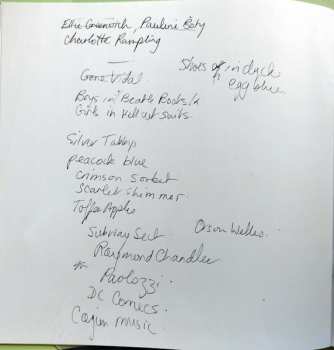 Ellie Greenwich, Pauline Boty
Charlotte Rampling
Gore Vidal
Shoes in duck
egg blue
Boys in Beatle Boots &
Girls in kilted suits
Silver Tabby
peacock blue
crimson sorbet
Scarlet shimmer.
Toffee Apple
Subway Sect
Orson Welles.
Raymond Chandler
Paolozzi.
DC Comics.
Cajun music